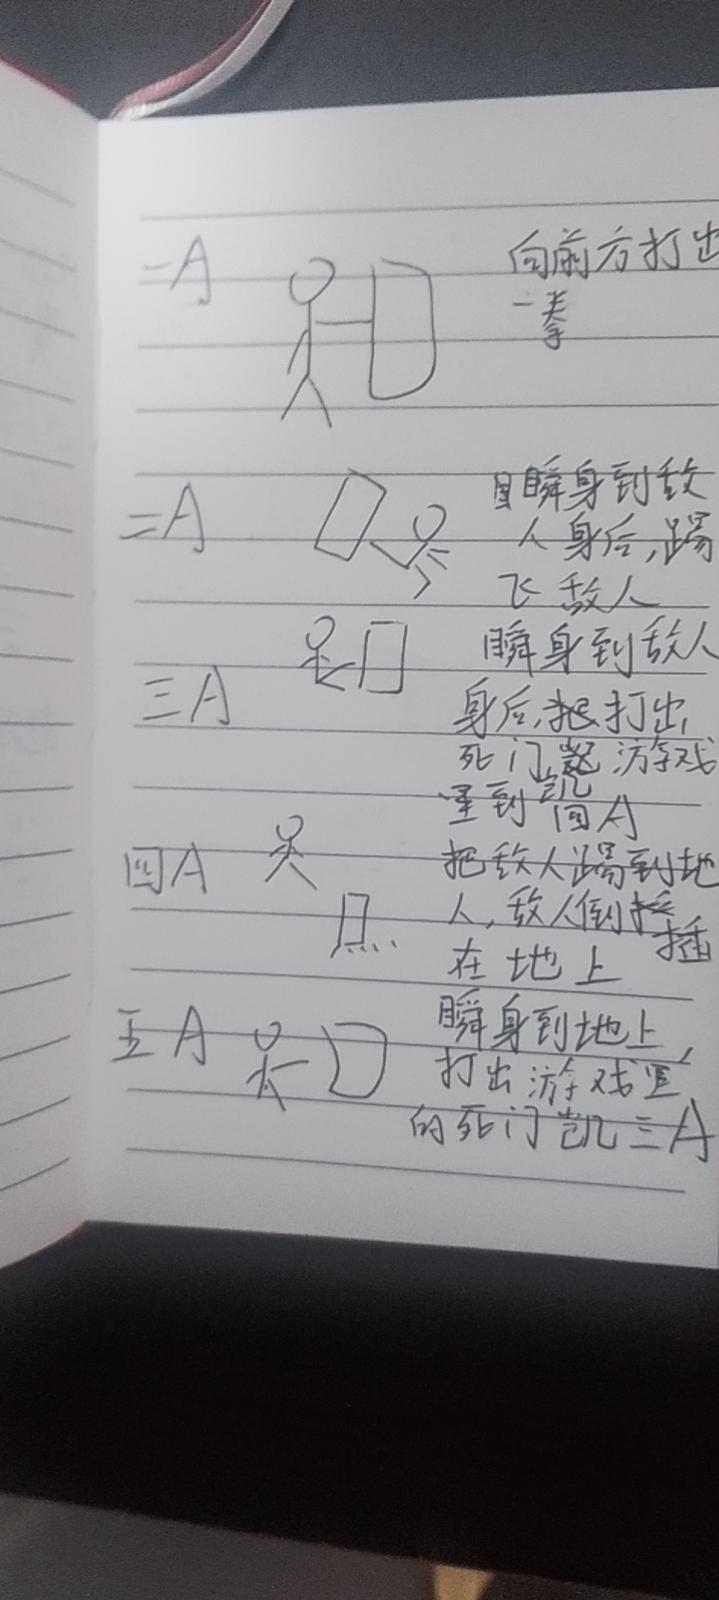 一A
向前方打出
一拳
二A
瞬身到敌
人身后,踢
飞敌人
三A
瞬身到敌人
身后,打出
死门凯游戏
里到四A
四A
把敌人踢到地
人,敌人倒插
在地上
五A
瞬身到地上,
打出游戏里
的死门凯三A